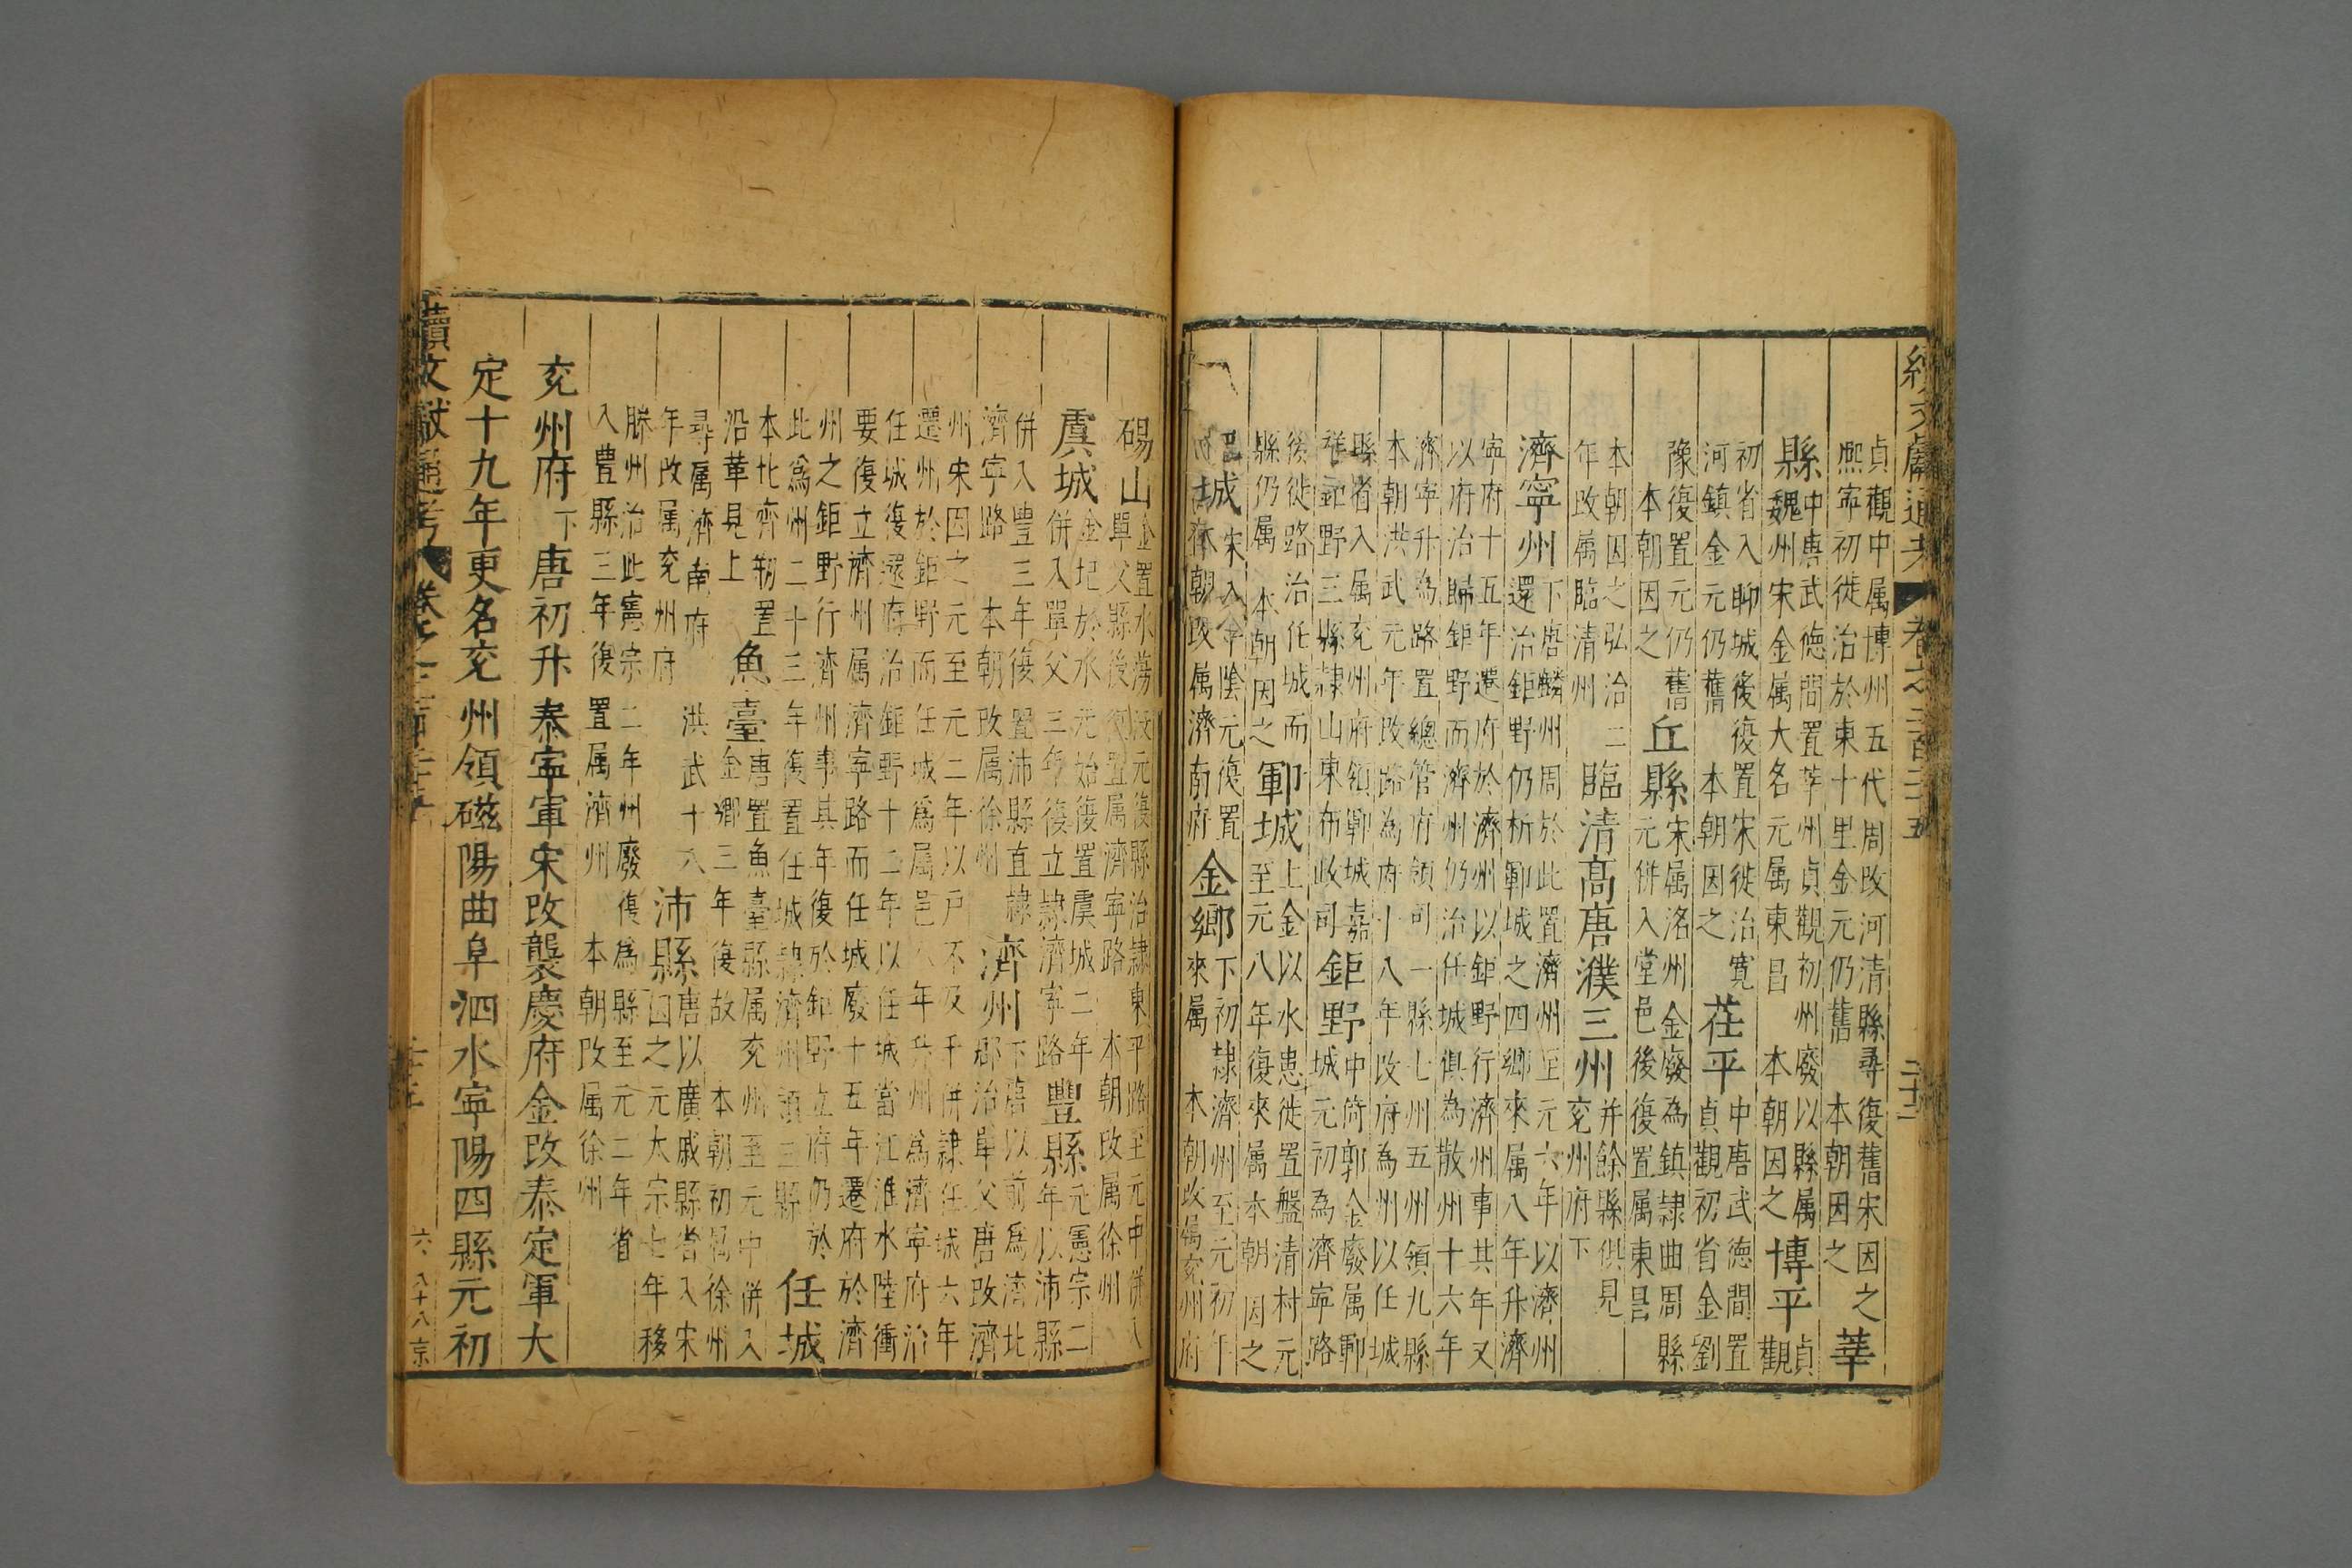 續文獻通考 卷之二百二十五 二十二
貞觀中属博州五代周改河清縣尋復舊宋因之
熙寧初徙治於東十里金元仍舊 本朝因之
莘
縣
中唐武德間置莘州貞觀初州廢以縣属
魏州宋金属大名元属東昌 本朝因之
博平
貞
觀
初省入聊城後復置宋徙治寬
河鎮金元仍舊 本朝因之
茌平
中唐武德間置
貞觀初省金劉
豫復置元仍舊
本朝因之
丘縣
宋属洺州金廢為鎮隷曲周縣
元併入堂邑後復置属東昌
本朝因之弘治二
年改属臨清州
臨清高唐濮三州
并餘縣俱見
兖州府下
濟寧州
下唐麟州周於此置濟州至元六年以濟州
還治鉅野仍析鄆城之四鄉來属八年升濟
寧府十五年遷府於濟州以鉅野行濟州事其年又
以府治歸鉅野而濟州仍治任城俱為散州十六年
濟寧升為路置總管府領司一縣七州五州領九縣
本朝洪武元年改路為府十八年改府為州以任城
縣省入属兖州府領鄆城嘉
祥鉅野三縣隷山東布政司
鉅野
中倚郭金廢属鄆
城元初為濟寧路
後徙路治任城而
縣仍属 本朝因之
鄆城
上金以水患徙置盤清村元
至元八年復來属本朝因之
城
宋入平陰元復置
本朝改属濟南府
金鄉
下初隷濟州至元初年
來属 本朝改属兖州府
碭山
金置水蕩没元復縣治隷東平路至元中併入
單父縣後復置属濟寧路 本朝改属徐州
虞城
金圮於水元始復置虞城二年
併入單父三年復立隷濟寧路
豐縣
元憲宗二
年以沛縣
併入豐三年復置沛縣直隷
濟寧路 本朝改属徐州
濟州
下唐以前為濟北
郡治單父唐改濟
州宋因之元至元二年以戶不及千併隷任城六年
遷州於鉅野而任城為属邑八年升州為濟寧府治
任城復還府治鉅野十二年以任城當江淮水陸衝
要復立濟州属濟寧路而任城廢十五年遷府於濟
州之鉅野行濟州事其年復於鉅野立府仍於
此為州二十三年復置任城隷濟州領三縣
任城
本北齊郡置
沿革見上
魚臺
唐置魚臺縣属兖州至元中併入
金鄉三年復故 本朝初属徐州
尋属濟南府 洪武十八
年改属兖州府
沛縣
唐以廣戚縣省入宋
因之元太宗七年移
滕州治此憲宗二年州廢復為縣至元二年省
入豊縣三年復置属濟州 本朝改属徐州
兖州府下唐初升泰寧軍宋改襲慶府金改泰定軍大
定十九年更名兖州領磁陽曲阜泗水寧陽四縣元初
續文獻通考
六八十八京